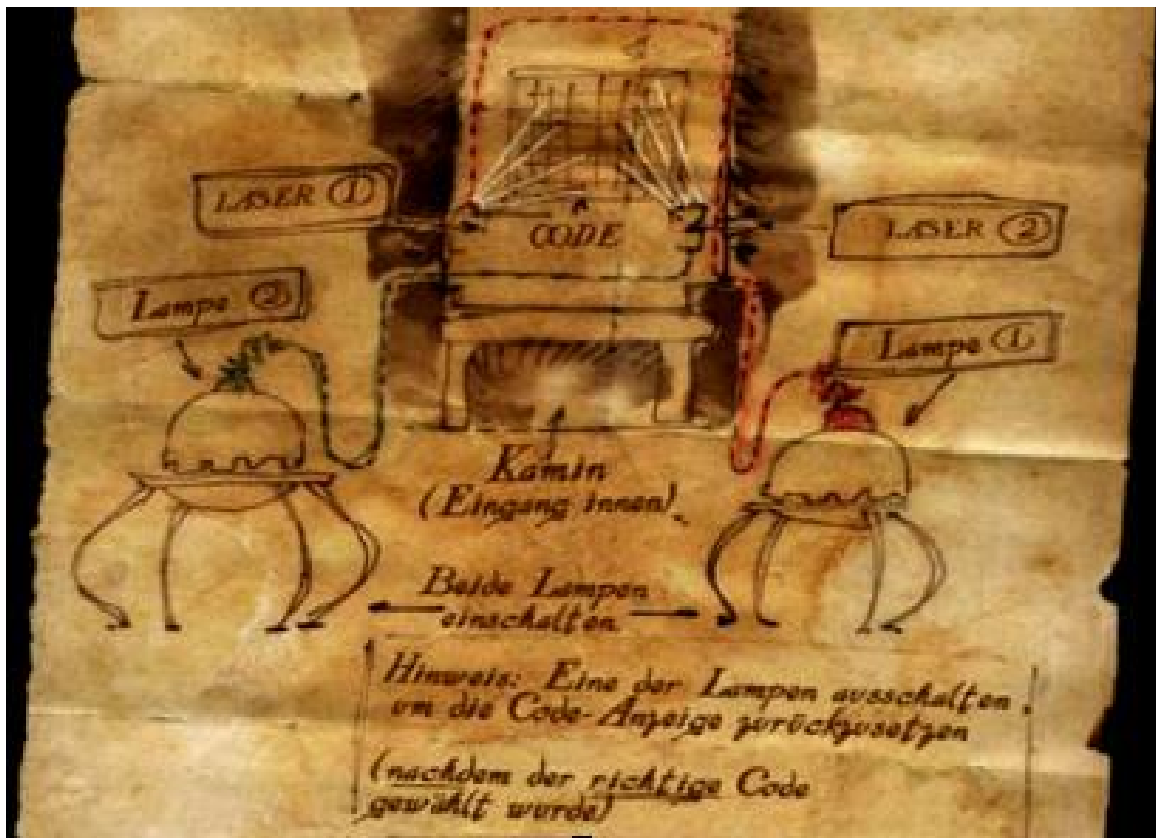 LASER ①
CODE
LASER ②
Lampe ②
Lampe ①
Kamin
(Eingang innen)
Beide Lampen
einschalten
Hinweis: Eine der Lampen ausschalten,
um die Code-Anzeige zurückzusetzen
(nachdem der richtige Code
gewählt wurde)